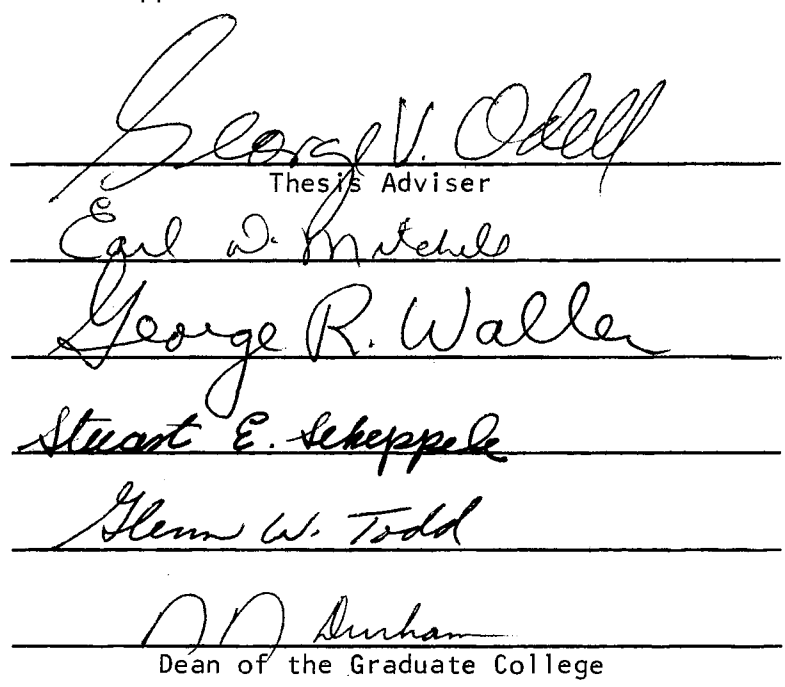 George V. Odell
Thesis Adviser
Earl D. Mitchell
George R. Waller
Stuart E. Scheppele
Glenn W. Todd
Durham
Dean of the Graduate College